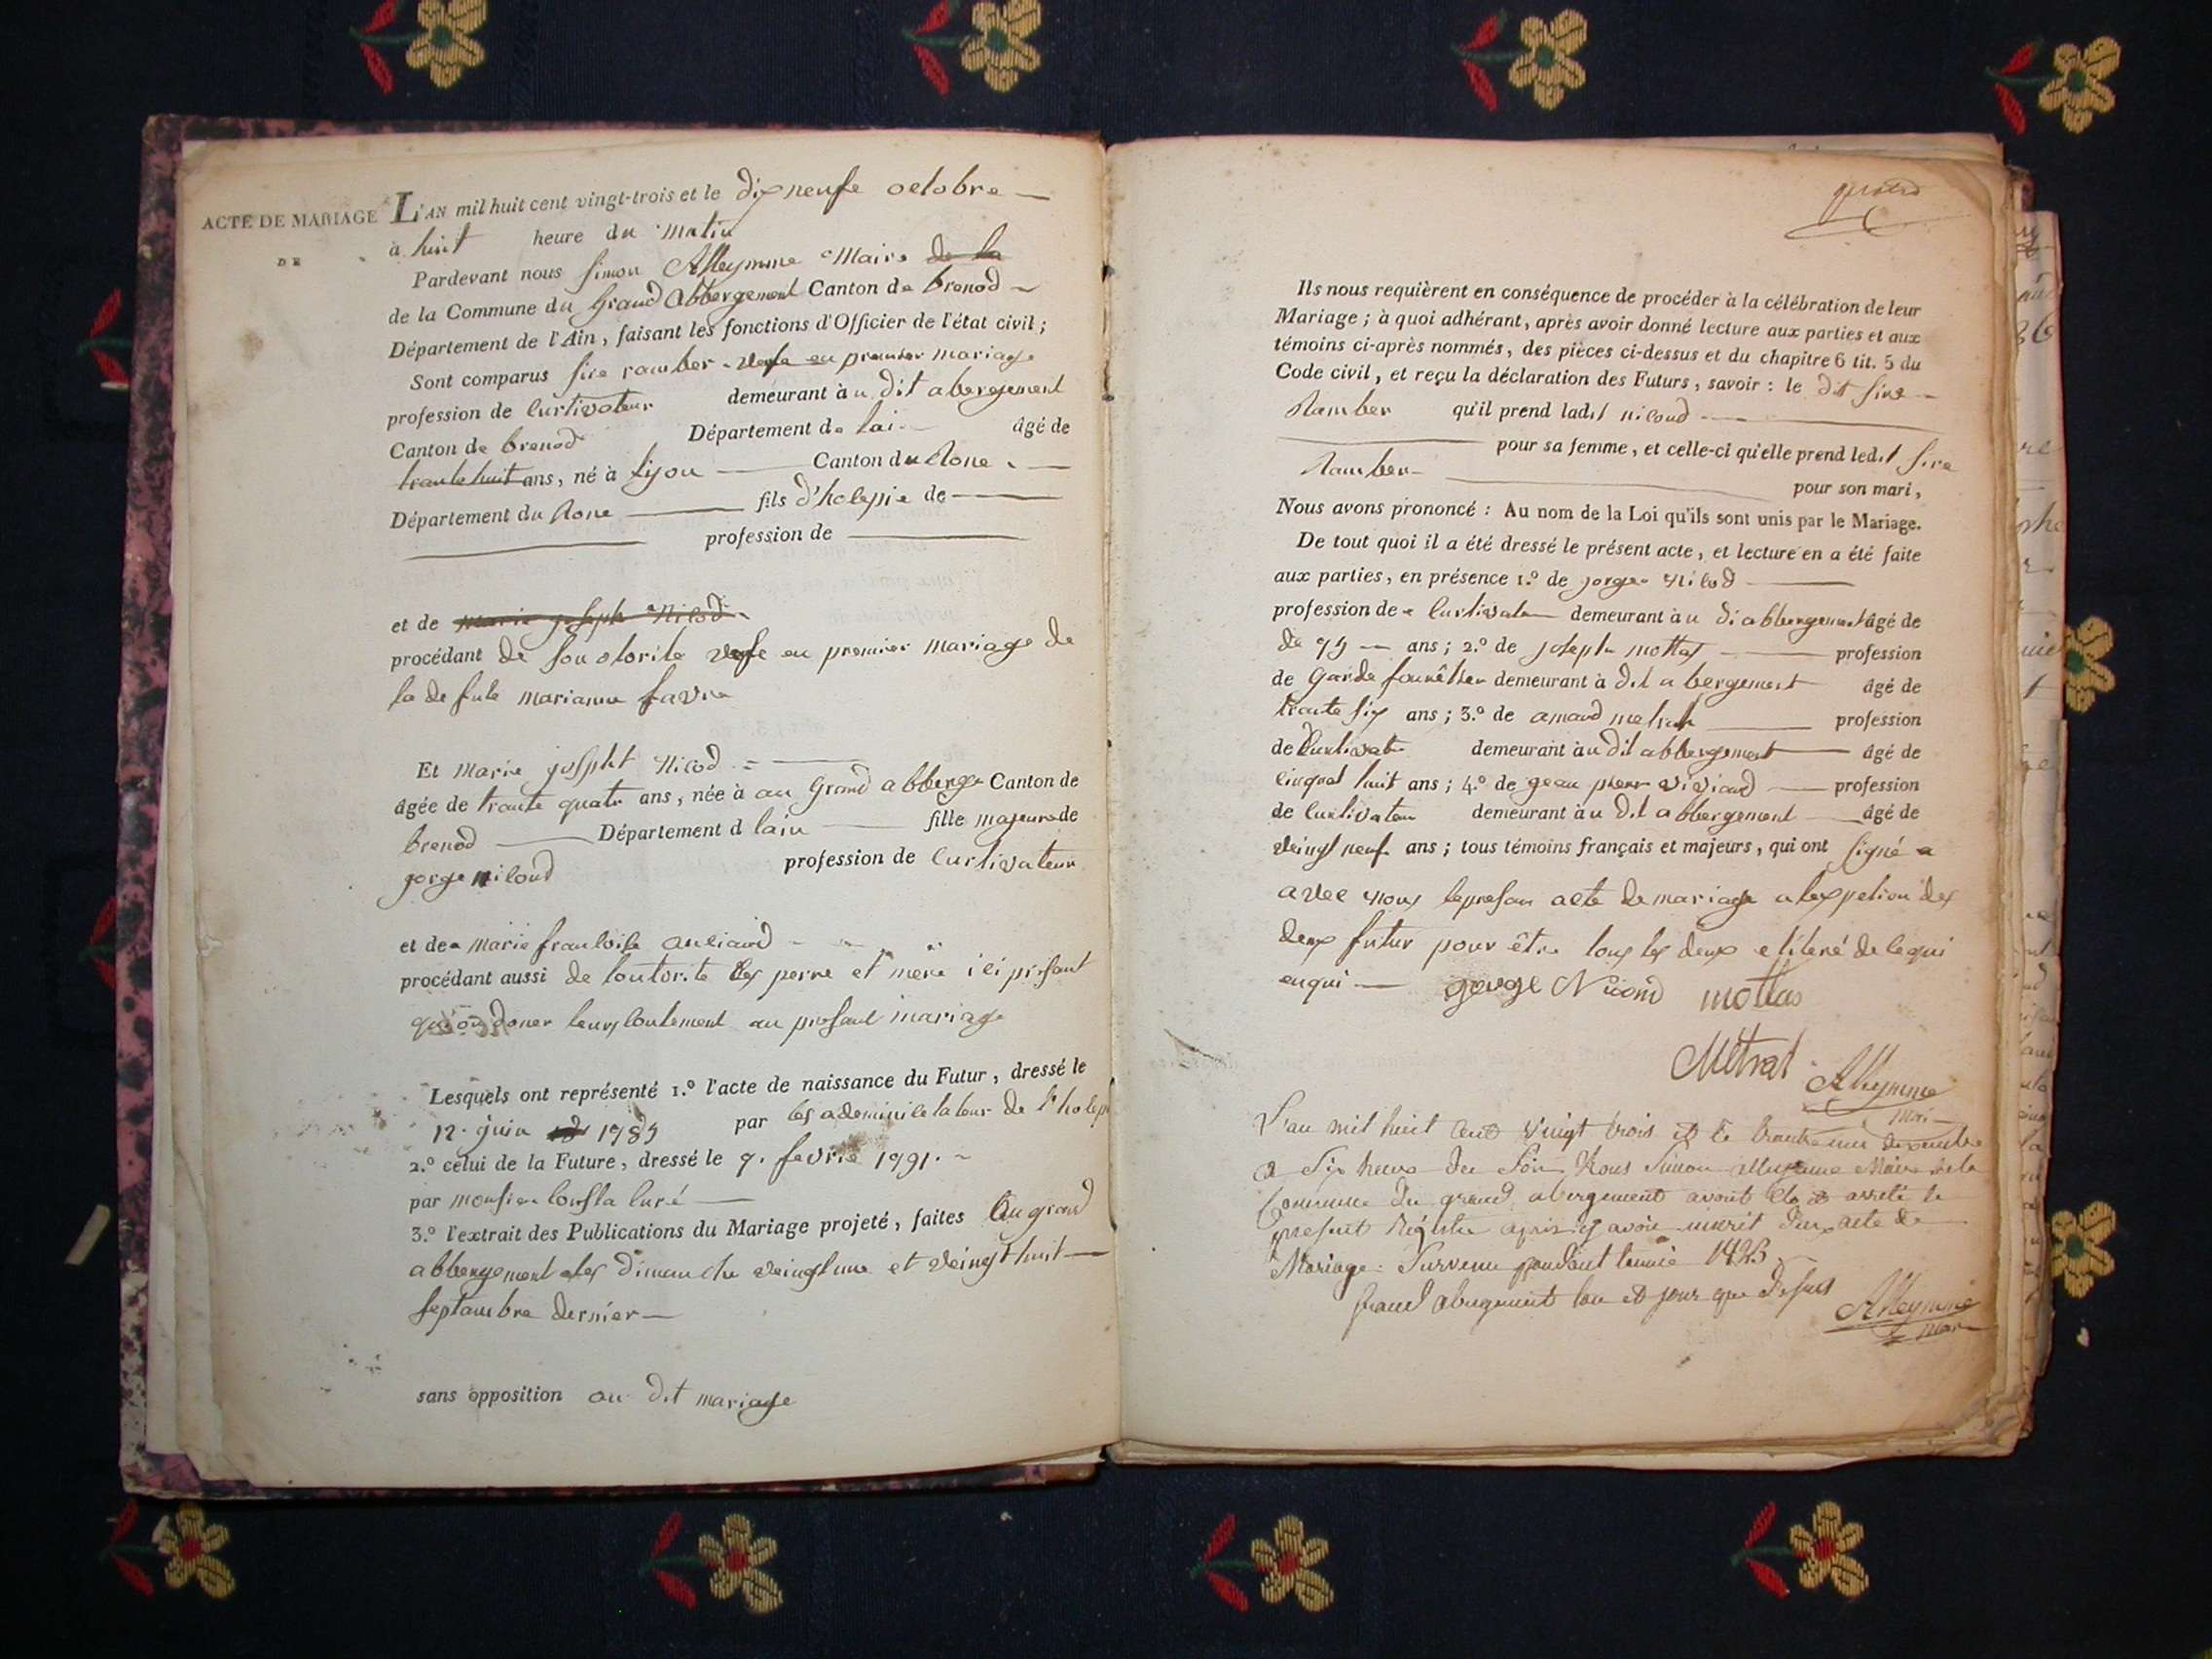 ACTE DE MARIAGE
DE
L'AN mil huit cent vingt-trois et le dixneufe octobre
à huit heure du matin
Pardevant nous Simon Alleymme Maire de la
de la Commune du Grand Abbergement Canton de brenod
Département de l'Ain, faisant les fonctions d'Officier de l'état civil;
Sont comparus sire ramber vefe en premier mariage
profession de curtivateur demeurant à u dit abergement
Canton de brenod Département de lai âgé de
trante huit ans, né à Lyon Canton du Rone
Département du Rone fils d'holepie de
profession de
et de marie joseph Nicod
procédant de son otorite vefe en premier mariage de
la defute marianne favre
Et marie josepht Nicod
âgée de trante quatre ans, née à au Grand abberge Canton de
brenod Département d lain fille majeure de
gorge nicoud profession de curtivateur
et de marie francoise
procédant aussi de loutorite des perre et mere ici presant
qui on doner leurs contement au presant mariage
Lesquels ont représenté 1.º l'acte de naissance du Futur, dressé le
12. juin 1785 par les adminicetateur de l'holepi
2.º celui de la Future, dressé le 7. fevrie 1791.
par monsieu le curé
3.º l'extrait des Publications du Mariage projeté, faites au grand
abbergement les dimanche veingt une et veingt huit
septambre dernier
sans opposition au dit mariage
Ils nous requièrent en conséquence de procéder à la célébration de leur
Mariage; à quoi adhérant, après avoir donné lecture aux parties et aux
témoins ci-après nommés, des pièces ci-dessus et du chapitre 6 tit. 5 du
Code civil, et reçu la déclaration des Futurs, savoir: le dit sire
Ramber qu'il prend ladit nicoud
pour sa femme, et celle-ci qu'elle prend ledit sire
Ramber
pour son mari,
Nous avons prononcé: Au nom de la Loi qu'ils sont unis par le Mariage.
De tout quoi il a été dressé le présent acte, et lecture en a été faite
aux parties, en présence 1.º de gorge Nicod
profession de curtivateu demeurant à u di abbergement âgé de
de 75 ans; 2.º de joseph mottas profession
de Garde fourêtier demeurant à dit abergement âgé de
trante six ans; 3.º de amand metrat profession
de Curtivate demeurant à u dit abbergement âgé de
cinquat huit ans; 4.º de gean pierr viviand profession
de curtivateu demeurant à u dit abbergement âgé de
veingt neuf ans; tous témoins français et majeurs, qui ont signé a
avec nous le presan acte de mariage a lexpetion des
deux futur pour être tous les deux e litere de ce qui
enqui george Nicoud mottas
Métrat Alleymme
maire
L'an mil huit cent vingt trois et le trante une dexembre
a six heure du soir Nous Simon Alleymme Maire de la
Commune du grand abergement avont clo et arreté le
present Régistre apris y avoir inscrit deux acte de
Mariage survenu pandant lannée 1823
Grand abergement lan et jour que desus
Alleymme
maire